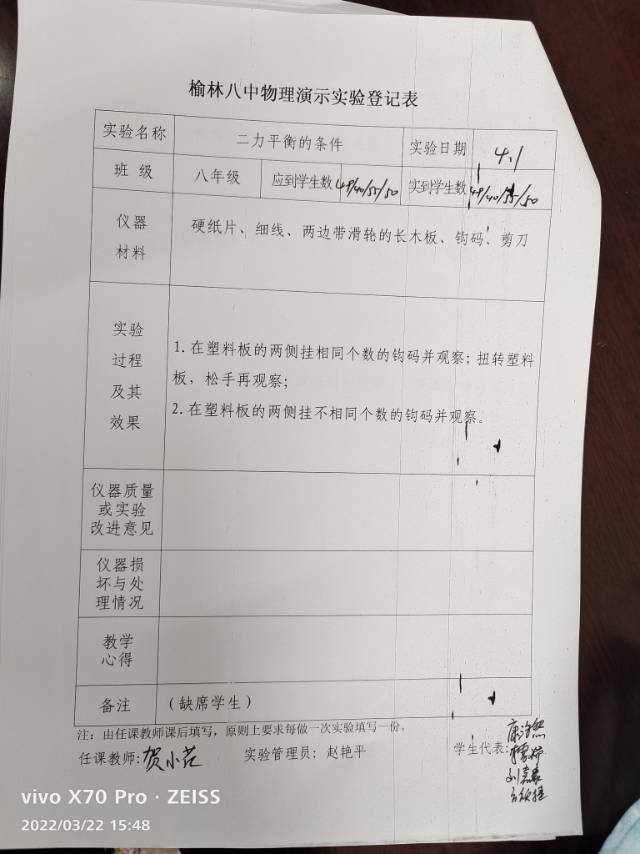 榆林八中物理演示实验登记表
实验名称 二力平衡的条件 实验日期 4.1
班 级 八年级 应到学生数 49/40/55/50 实到学生数 49/40/55/50
仪器
材料
硬纸片、细线、两边带滑轮的长木板、钩码、剪刀
实验
过程
及其
效果
1.在塑料板的两侧挂相同个数的钩码并观察；扭转塑料
板，松手再观察；
2.在塑料板的两侧挂不相同个数的钩码并观察。
仪器质量
或实验
改进意见
仪器损
坏与处
理情况
教学
心得
备注 （缺席学生）
注：由任课教师课后填写，原则上要求每做一次实验填写一份。
任课教师：贺小花 实验管理员：赵艳平 学生代表：
vivo X70 Pro · ZEISS
2022/03/22 15:48